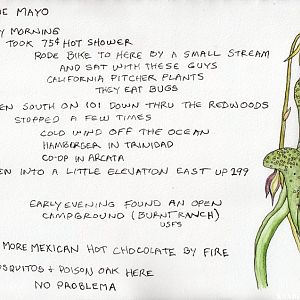 DE MAYO
Y MORNING
TOOK 75¢ HOT SHOWER
RODE BIKE TO HERE BY A SMALL STREAM
AND SAT WITH THESE GUYS
CALIFORNIA PITCHER PLANTS
THEY EAT BUGS
EN SOUTH ON 101 DOWN THRU THE REDWOODS
STOPPED A FEW TIMES
COLD WIND OFF THE OCEAN
HAMBERGER IN TRINIDAD
CO-OP IN ARCATA
EN INTO A LITTLE ELEVATION EAST UP 299
EARLY EVENING FOUND AN OPEN
CAMPGROUND (BURNT RANCH)
USFS
MORE MEXICAN HOT CHOCOLATE BY FIRE
OSQUITOS + POISON OAK HERE
NO PROBLEMA